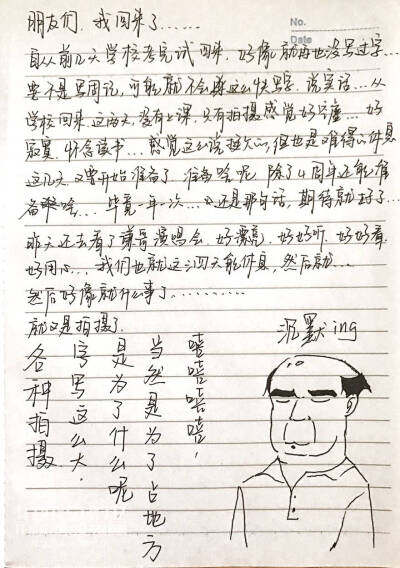 No.
Date
朋友们,我回来了......
自从前几天学校考完试回来,好像就再也没写过字...
要不是写周记,可能就不会这么快写字,说实话...从
学校回来这两天,没有上课,只有拍摄感觉好...好
寂寞,怀念读书...感觉这么说挺欠的,但也是难得的休息
这几天又要开始准备了,准备啥呢,除了4周年还能准
备啥...毕竟一年一次...还是那句话,期待就好了...
昨天还去看了哥演唱会,好漂亮,好好听,好好看
好用心...我们也就这三四天能休息,然后就...
然后好像就什么事了.........
就又是拍摄了.
各种拍摄
字写这么大,
是为了什么呢
当然是为了占地方
嘻嘻嘻嘻!
沉默ing